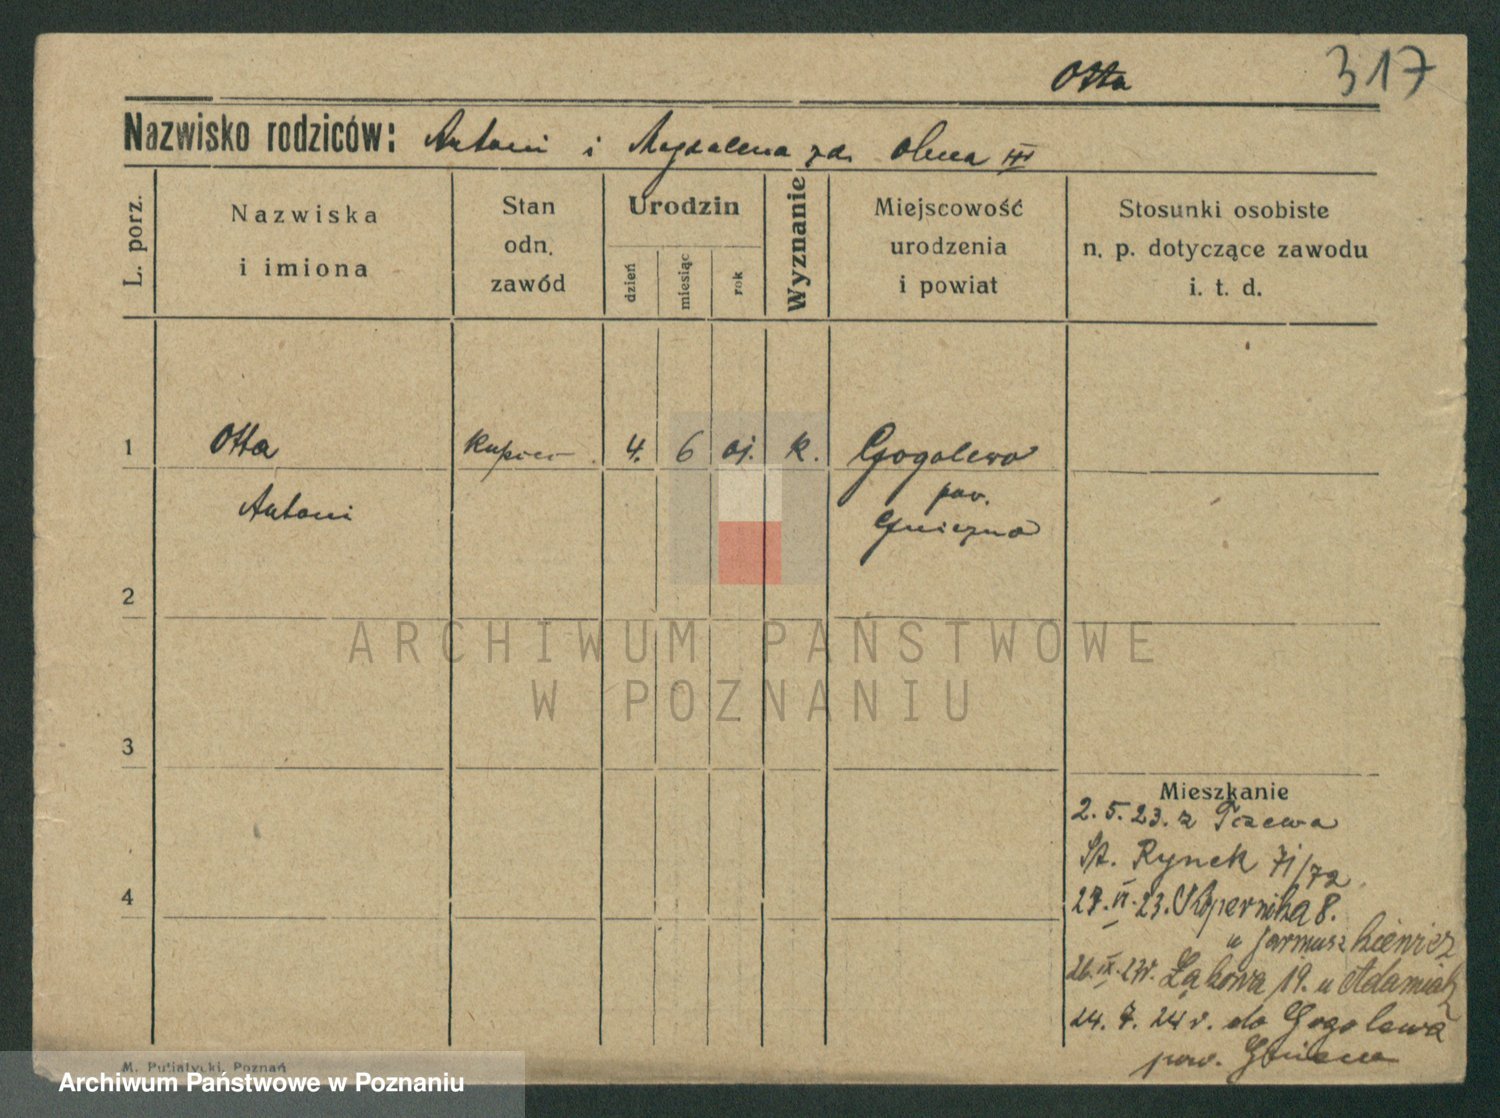 Otta
317
Nazwisko rodziców: Antoni i Magdalena zd.
L. porz.
Nazwiska
i imiona
Stan
odn.
zawód
Urodzin
dzień
miesiąc
rok
Wyznanie
Miejscowość
urodzenia
i powiat
Stosunki osobiste
n. p. dotyczące zawodu
i. t. d.
1
Otta
kupiec
4.
6
01.
k.
Gogolewo
Antoni
pow.
Gniezno
2
ARCHIWUM PAŃSTWOWE
W POZNANIU
3
Mieszkanie
2. 5. 23. z Tczewa
St. Rynek 71/72
4
29. VI. 23. Kopernika 8.
u Jarmuszkiewicz
26. IX. 23r. Łąkowa 19. u Adamiak
24. 7. 24 r. do Gogolewa
pow.
M. Putiatycki, Poznań
Archiwum Państwowe w Poznaniu